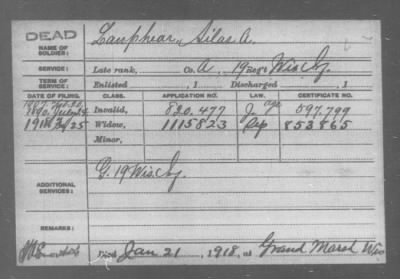 DEAD
NAME OF SOLDIER: Lanphear, Silas A.
SERVICE: Late rank, Co. A, 19 Reg't Wis Inf.
TERM OF SERVICE: Enlisted , 1 Discharged , 1
DATE OF FILING. CLASS. APPLICATION NO. LAW. CERTIFICATE NO.
1890 Invalid, 820.477 J age 597.799
1918 25 Widow, 1115823 853865
Minor,
ADDITIONAL SERVICES: G. 19 Wis. Inf.
REMARKS:
Died Jan 21, 1918, at Grand Marsh Wis